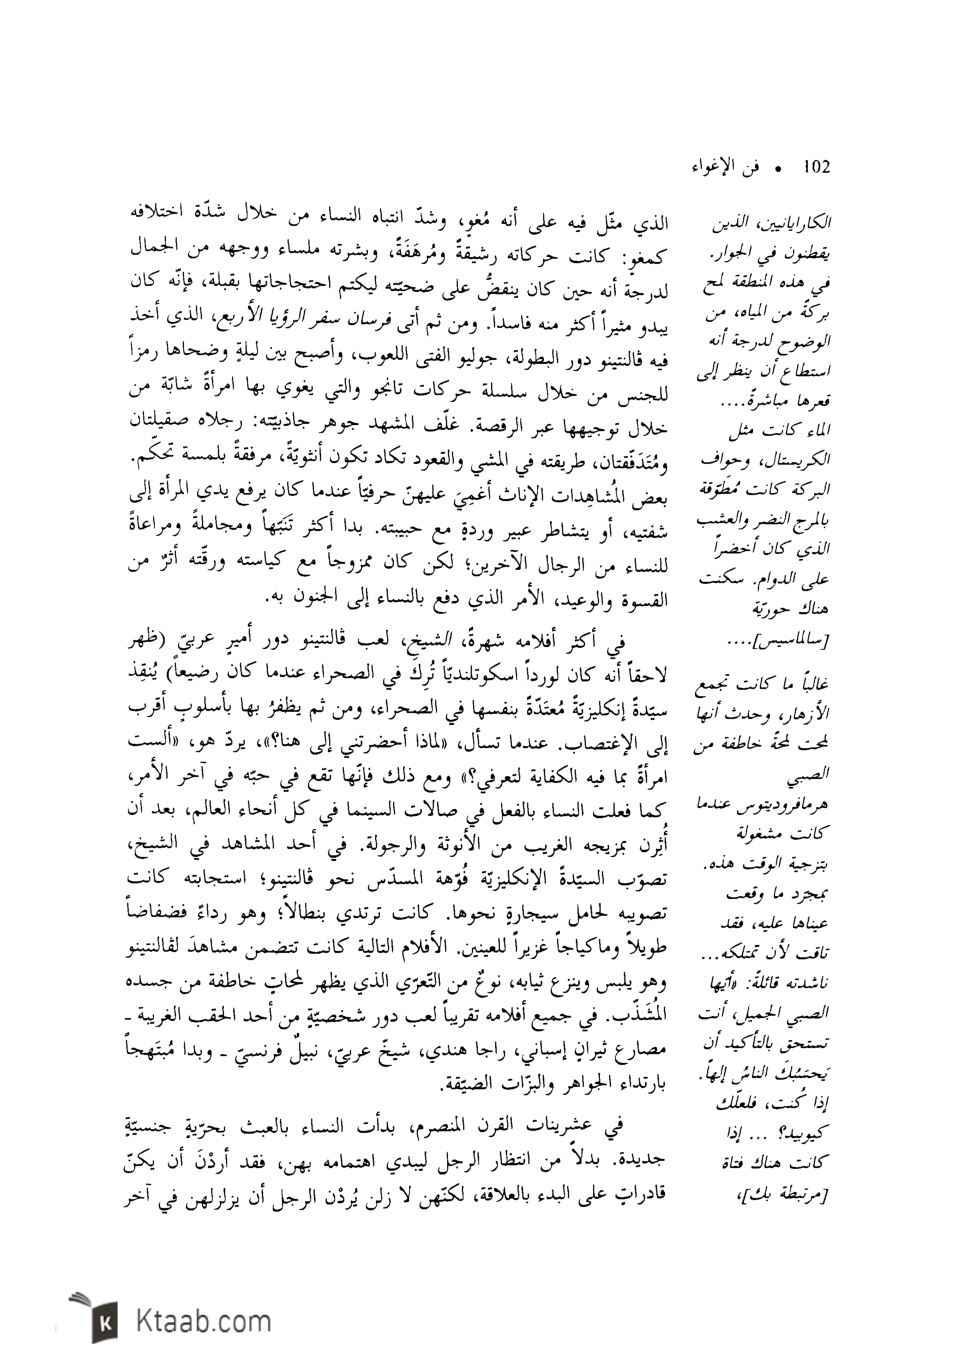 102 • فن الإغواء
الكارايانيين، الذين
يقطنون في الجوار.
في هذه المنطقة لمح
بركةً من المياه، من
الوضوح لدرجة أنه
استطاع أن ينظر إلى
قعرها مباشرةً....
الماء كانت مثل
الكريستال، وحواف
البركة كانت مُطَوّقة
بالمرج النضر والعشب
الذي كان أخضراً
على الدوام. سكنت
هناك حوريّة
[سالماسيس]....
غالباً ما كانت تجمع
الأزهار، وحدث أنها
لمحت لمحةً خاطفة من
الصبي
هرمافروديتوس عندما
كانت مشغولة
بتزجية الوقت هذه.
بمجرّد ما وقعت
عيناها عليه، فقد
تاقت لأن تمتلكه...
ناشدته قائلةً: «أيّها
الصبي الجميل، أنت
تستحق بالتأكيد أن
يَحسَبُكَ الناسُ إلهاً.
إذا كُنت، فلعلّك
كيوبيد؟ ... إذا
كانت هناك فتاة
[مرتبطة بك]،
الذي مثّل فيه على أنه مُغوٍ، وشدّ انتباه النساء من خلال شدّة اختلافه
كمغوٍ: كانت حركاته رشيقةً ومُرهَفَةً، وبشرته ملساء ووجهه من الجمال
لدرجة أنه حين كان ينقضُّ على ضحيّته ليكتم احتجاجاتها بقبلة، فإنّه كان
يبدو مثيراً أكثر منه فاسداً. ومن ثم أتى فرسان سفر الرؤيا الأربع، الذي أخذ
فيه ڤالنتينو دور البطولة، جوليو الفتى اللعوب، وأصبح بين ليلةٍ وضحاها رمزاً
للجنس من خلال سلسلة حركات تانجو والتي يغوي بها امرأةً شابّة من
خلال توجيهها عبر الرقصة. غلّف المشهد جوهر جاذبيّته: رجلاه صقيلتان
ومُتَدَفّقتان، طريقته في المشي والقعود تكاد تكون أنثويّةً، مرفقةً بلمسة تحكّم.
بعض المُشاهِدات الإناث أغمِيَ عليهنّ حرفيّاً عندما كان يرفع يدي المرأة إلى
شفتيه، أو يتشاطر عبير وردةٍ مع حبيبته. بدا أكثر تَنَبّهاً ومجاملةً ومراعاةً
للنساء من الرجال الآخرين؛ لكن كان ممزوجاً مع كياسته ورقّته أثرٌ من
القسوة والوعيد، الأمر الذي دفع بالنساء إلى الجنون به.
في أكثر أفلامه شهرةً، الشيخ، لعب ڤالنتينو دور أميرٍ عربيّ (ظهر
لاحقاً أنه كان لورداً اسكوتلنديّاً تُرِكَ في الصحراء عندما كان رضيعاً) يُنقِذ
سيّدةً إنكليزيّةً مُعتَدّةً بنفسها في الصحراء، ومن ثم يظفرُ بها بأسلوبٍ أقرب
إلى الإغتصاب. عندما تسأل، «لماذا أحضرتني إلى هنا؟»، يردّ هو، «ألست
امرأةً بما فيه الكفاية لتعرفي؟» ومع ذلك فإنّها تقع في حبّه في آخر الأمر،
كما فعلت النساء بالفعل في صالات السينما في كل أنحاء العالم، بعد أن
أُثِرن بمزيجه الغريب من الأنوثة والرجولة. في أحد المشاهد في الشيخ،
تصوّب السيّدةُ الإنكليزيّة فُوّهة المسدّس نحو ڤالنتينو؛ استجابته كانت
تصويبه لحامل سيجارةٍ نحوها. كانت ترتدي بنطالاً؛ وهو رداءً فضفاضاً
طويلاً وماكياجاً غزيراً للعينين. الأفلام التالية كانت تتضمن مشاهدَ لڤالنتينو
وهو يلبس وينزع ثيابه، نوعٌ من التّعرّي الذي يظهر لمحاتٍ خاطفة من جسده
المُشَذّب. في جميع أفلامه تقريباً لعب دور شخصيّةٍ من أحد الحقب الغريبة ـ
مصارع ثيرانٍ إسباني، راجا هندي، شيخٌ عربيّ، نبيلٌ فرنسيّ ـ وبدا مُبتَهجاً
بارتداء الجواهر والبزّات الضيّقة.
في عشرينات القرن المنصرم، بدأت النساء بالعبث بحرّيةٍ جنسيّةٍ
جديدة. بدلاً من انتظار الرجل ليبدي اهتمامه بهن، فقد أردْنَ أن يكنّ
قادراتٍ على البدء بالعلاقة، لكنّهن لا زلن يُردْن الرجل أن يزلزلهن في آخر
Ktaab.com